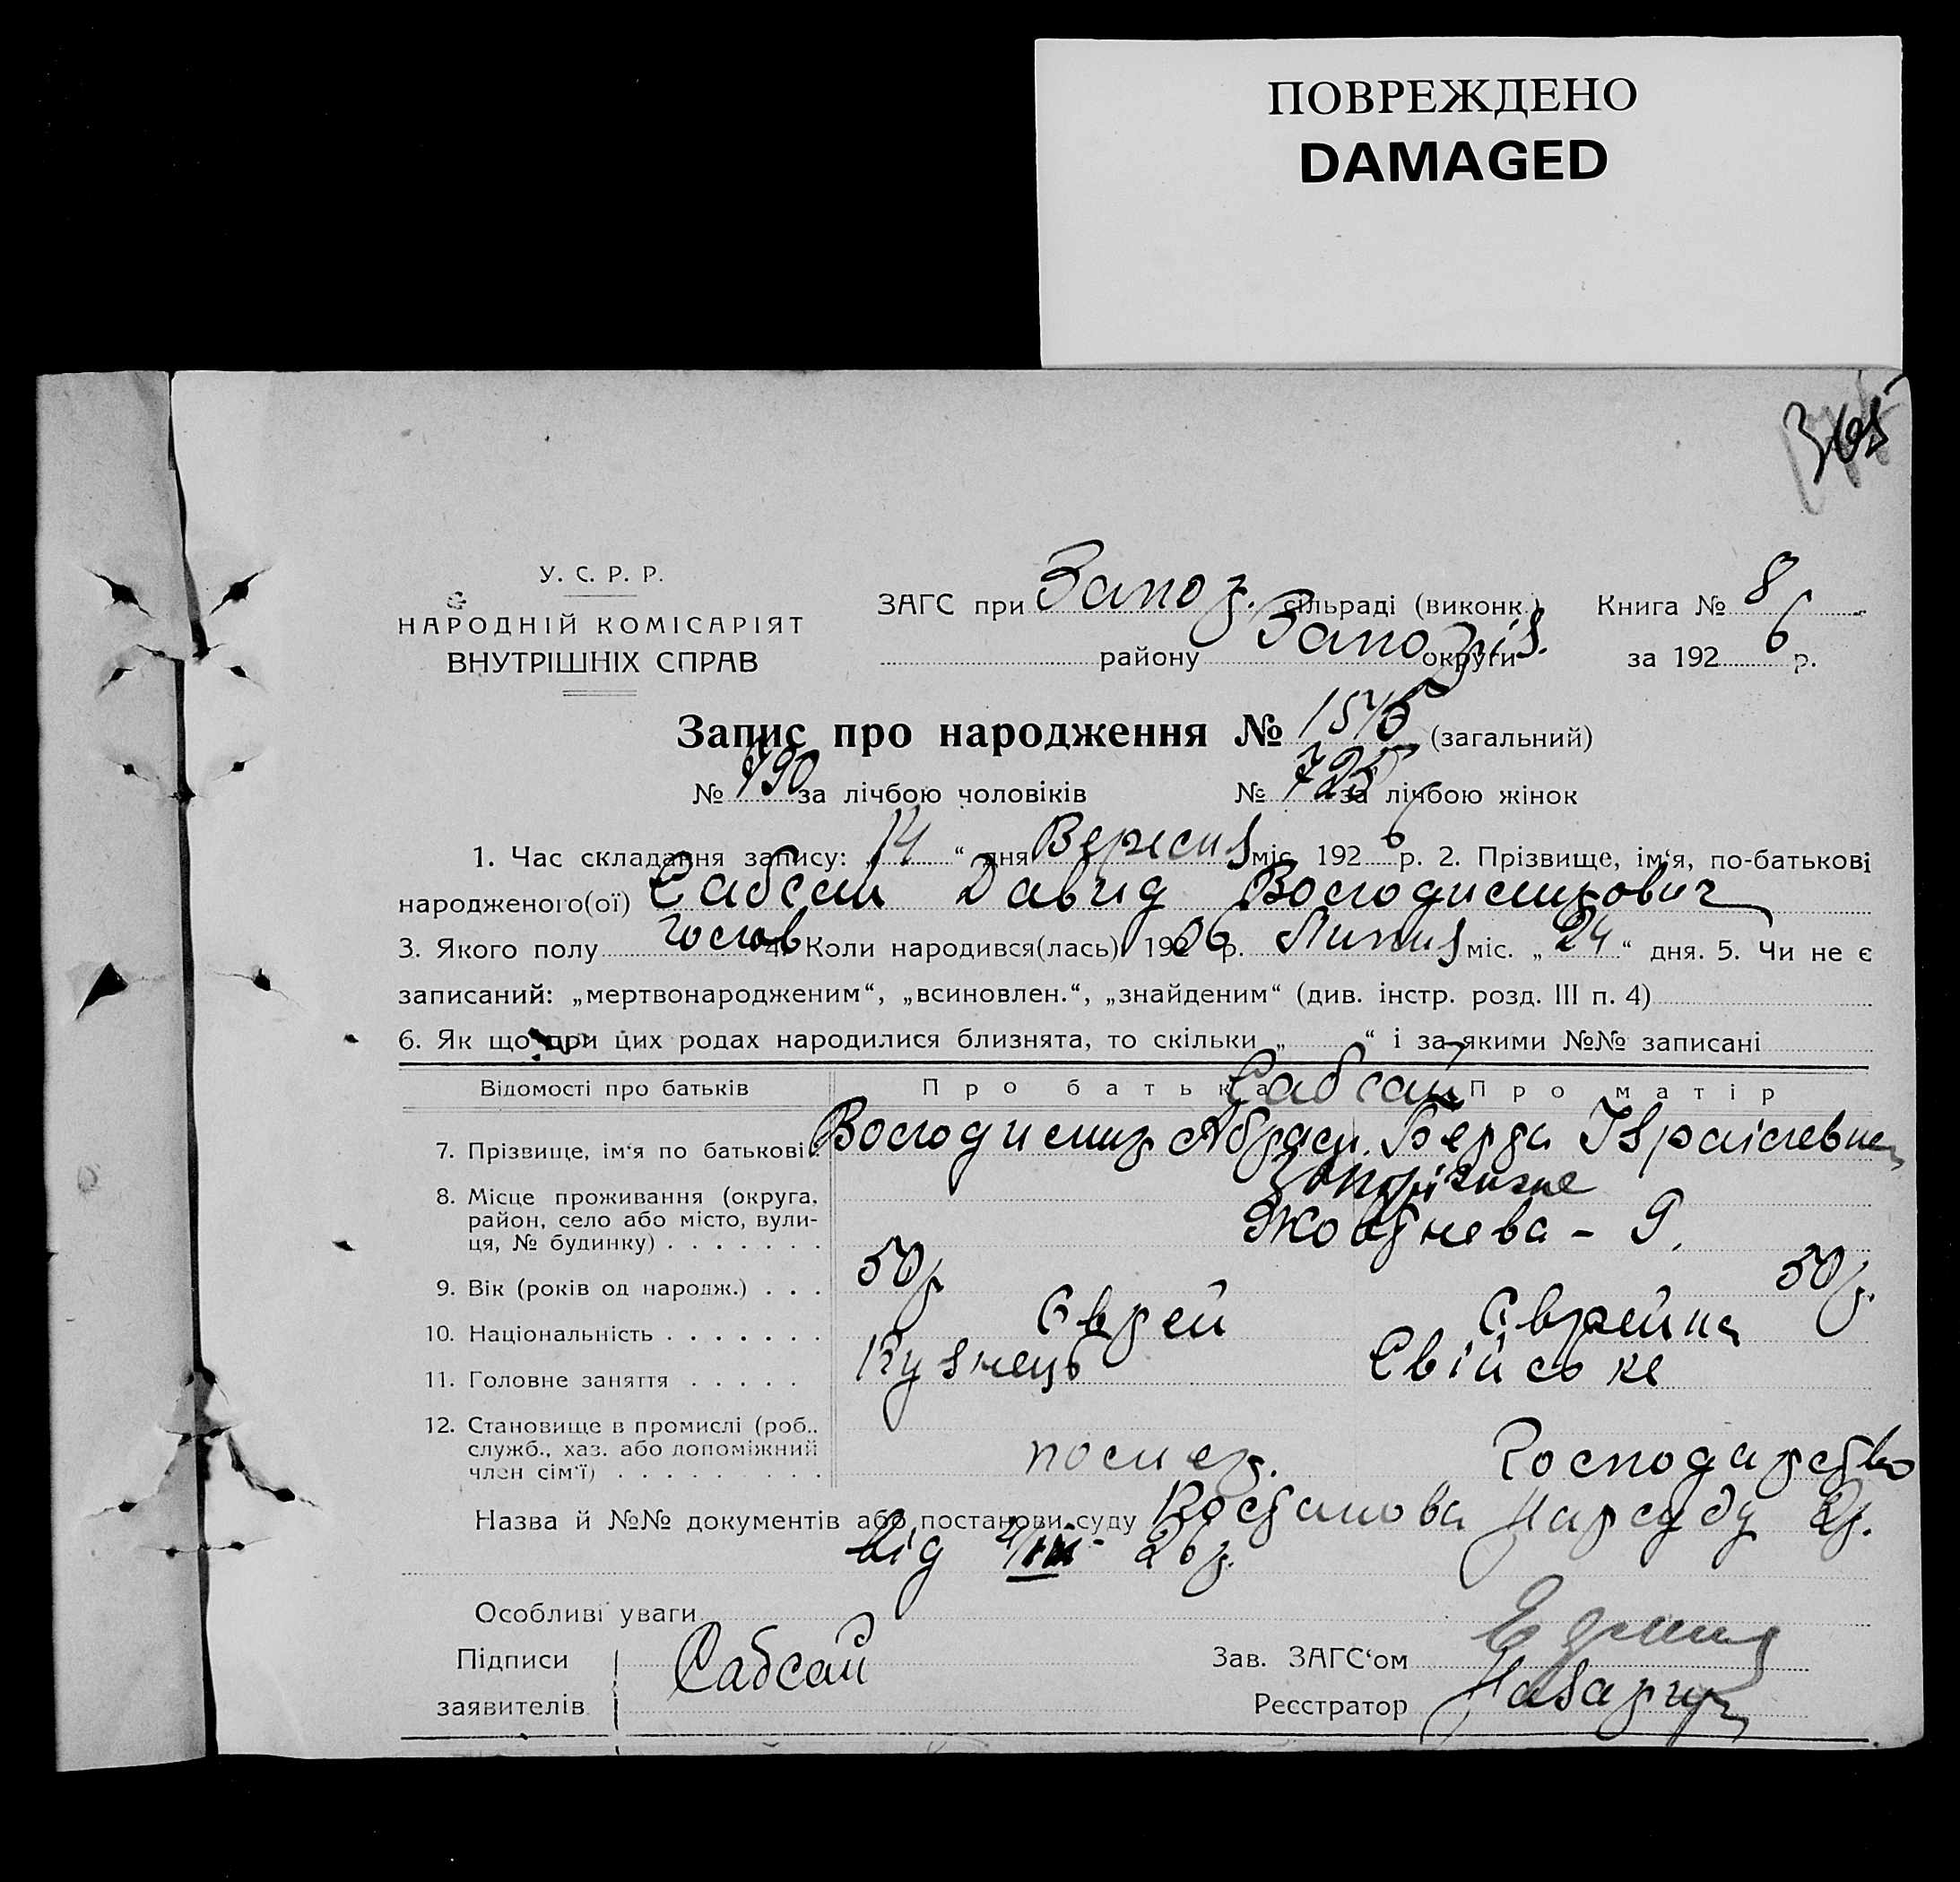 ПОВРЕЖДЕНО
DAMAGED
365
У. С. Р. Р.
НАРОДНІЙ КОМІСАРІЯТ
ВНУТРІШНІХ СПРАВ
ЗАГС при Запор. сільраді (виконк.)
району Запоріз. округи
Книга № 8
за 1926 р.
Запис про народження № 1515 (загальний)
№ 790 за лічбою чоловіків № 725 за лічбою жінок
1. Час складання запису: „14“ дня Вересня міс. 1926 р. 2. Прізвище, ім‘я, по-батькові
народженого(ої) Сабсай Давид Володимирович
3. Якого полу чолов 4. Коли народився(лась) 1906 р. Липня міс. „24“ дня. 5. Чи не є
записаний: „мертвонародженим“, „всиновлен.“, „знайденим“ (див. інстр. розд. III п. 4)
6. Як що при цих родах народилися близнята, то скільки „ “ і за якими №№ записані
Відомості про батьків Про батька Про матір
Сабсай
7. Прізвище, ім‘я по батькові. Володимир Абрам. Берта Ізраілевна
8. Місце проживання (округа, район, село або місто, вулиця, № будинку) Запоріжже
Жовтнева - 9.
9. Вік (років од народж.) 50 р. 50 р.
10. Національність Єврей Єврейка
11. Головне заняття Кузнець Свійське
12. Становище в промислі (роб., служб., хаз. або допоміжний член сім‘ї) помер. Господарство
Назва й №№ документів або постанови суду Постанова Нарсуду 2 р.
від 26 р.
Особливі уваги
Підписи заявителів Сабсай
Зав. ЗАГС‘ом
Реєстратор Назарчук